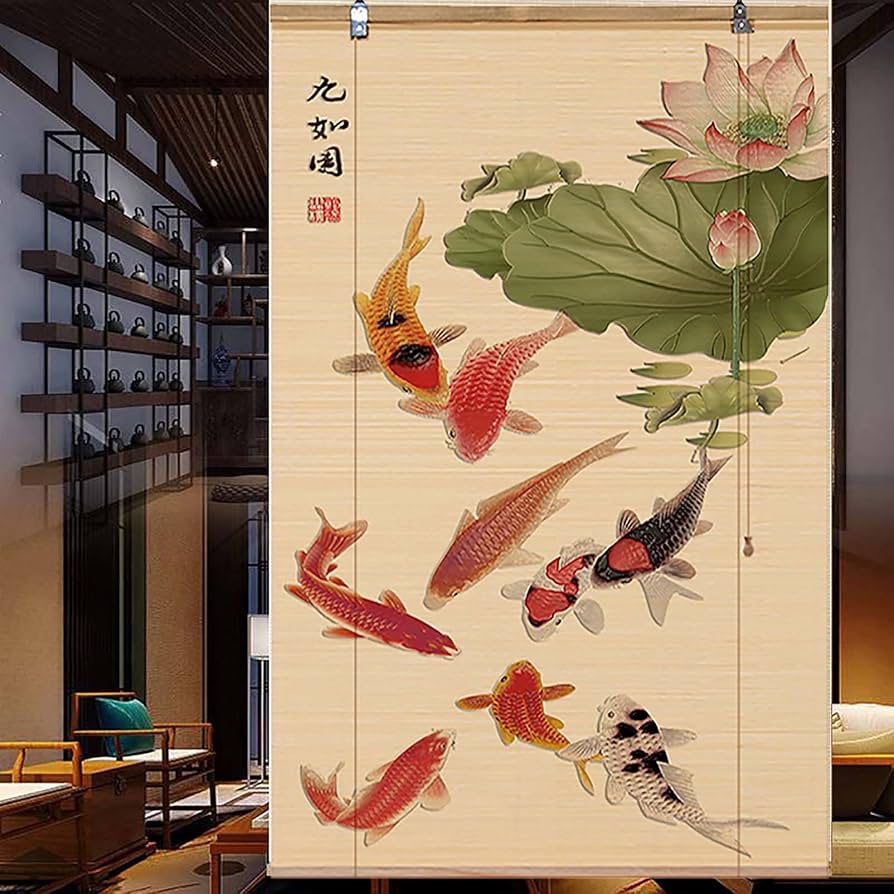 九如图